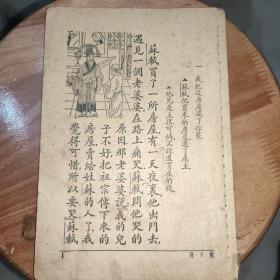 一 我把這房屋還了你罷
▲蘇軾把買來的房屋還了屋主
蘇軾買了一所房屋有一天夜裏他出門去
遇見一個老婆婆在路上痛哭蘇軾問他哭的
原因那老婆婆說我的兒
子不好把祖宗傳下來的
房屋賣給姓蘇的人了我
覺得可惜所以要哭蘇軾